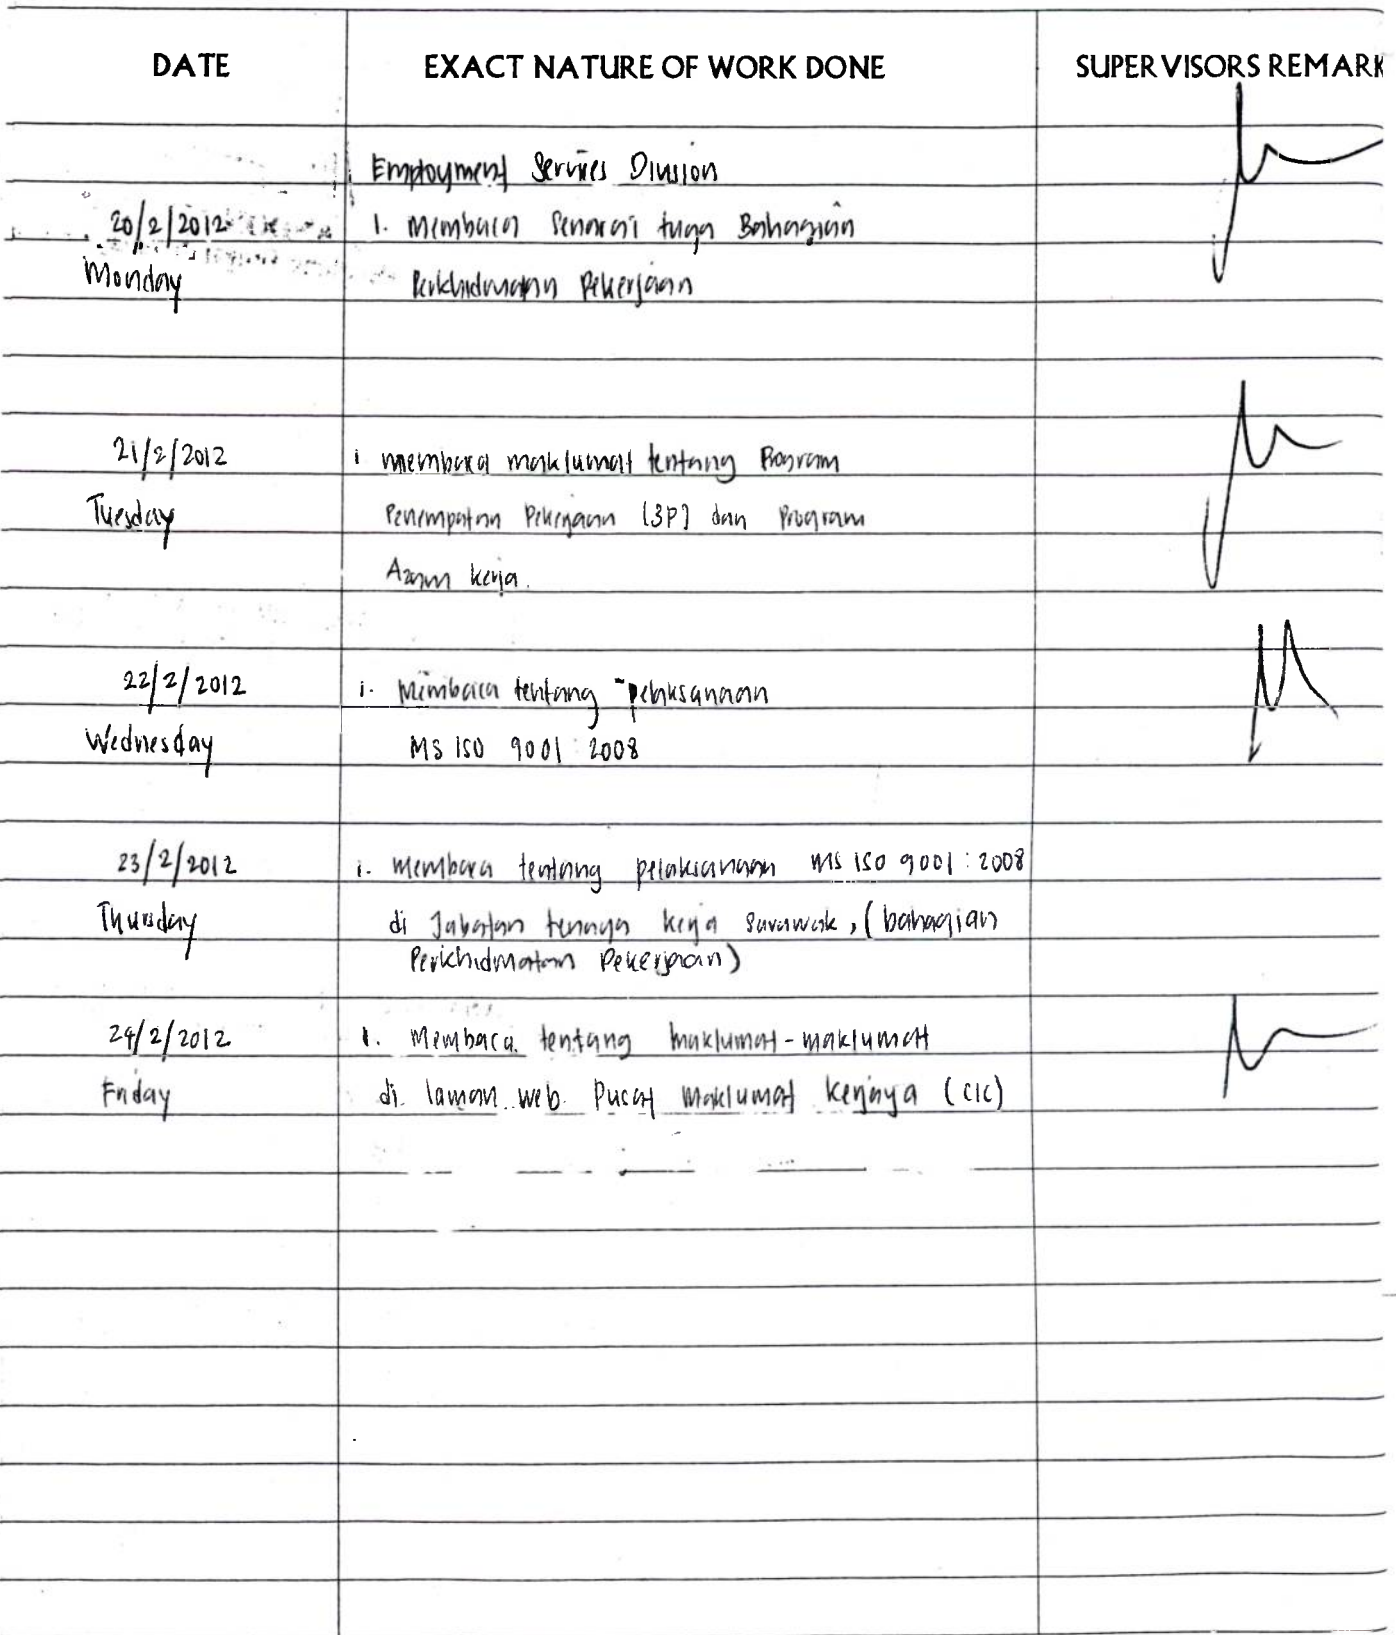 DATE EXACT NATURE OF WORK DONE SUPERVISORS REMARK
Employment Services Division
20/2/2012 1. Membaca senarai tuga Bahagian
Monday Perkhidmatan Pekerjaan
21/2/2012 i membaca maklumat tentang Program
Tuesday Penempatan Pekerjaan (3P) dan Program
Azam kerja.
22/2/2012 i. Membaca tentang pelaksanaan
Wednesday MS ISO 9001 : 2008
23/2/2012 i. Membaca tentang pelaksanaan MS ISO 9001 : 2008
Thursday di Jabatan tenaga kerja sarawak, (bahagian
Perkhidmatan Pekerjaan)
24/2/2012 1. Membaca tentang maklumat-maklumat
Friday di laman web Pusat Maklumat Kerjaya (CIC)